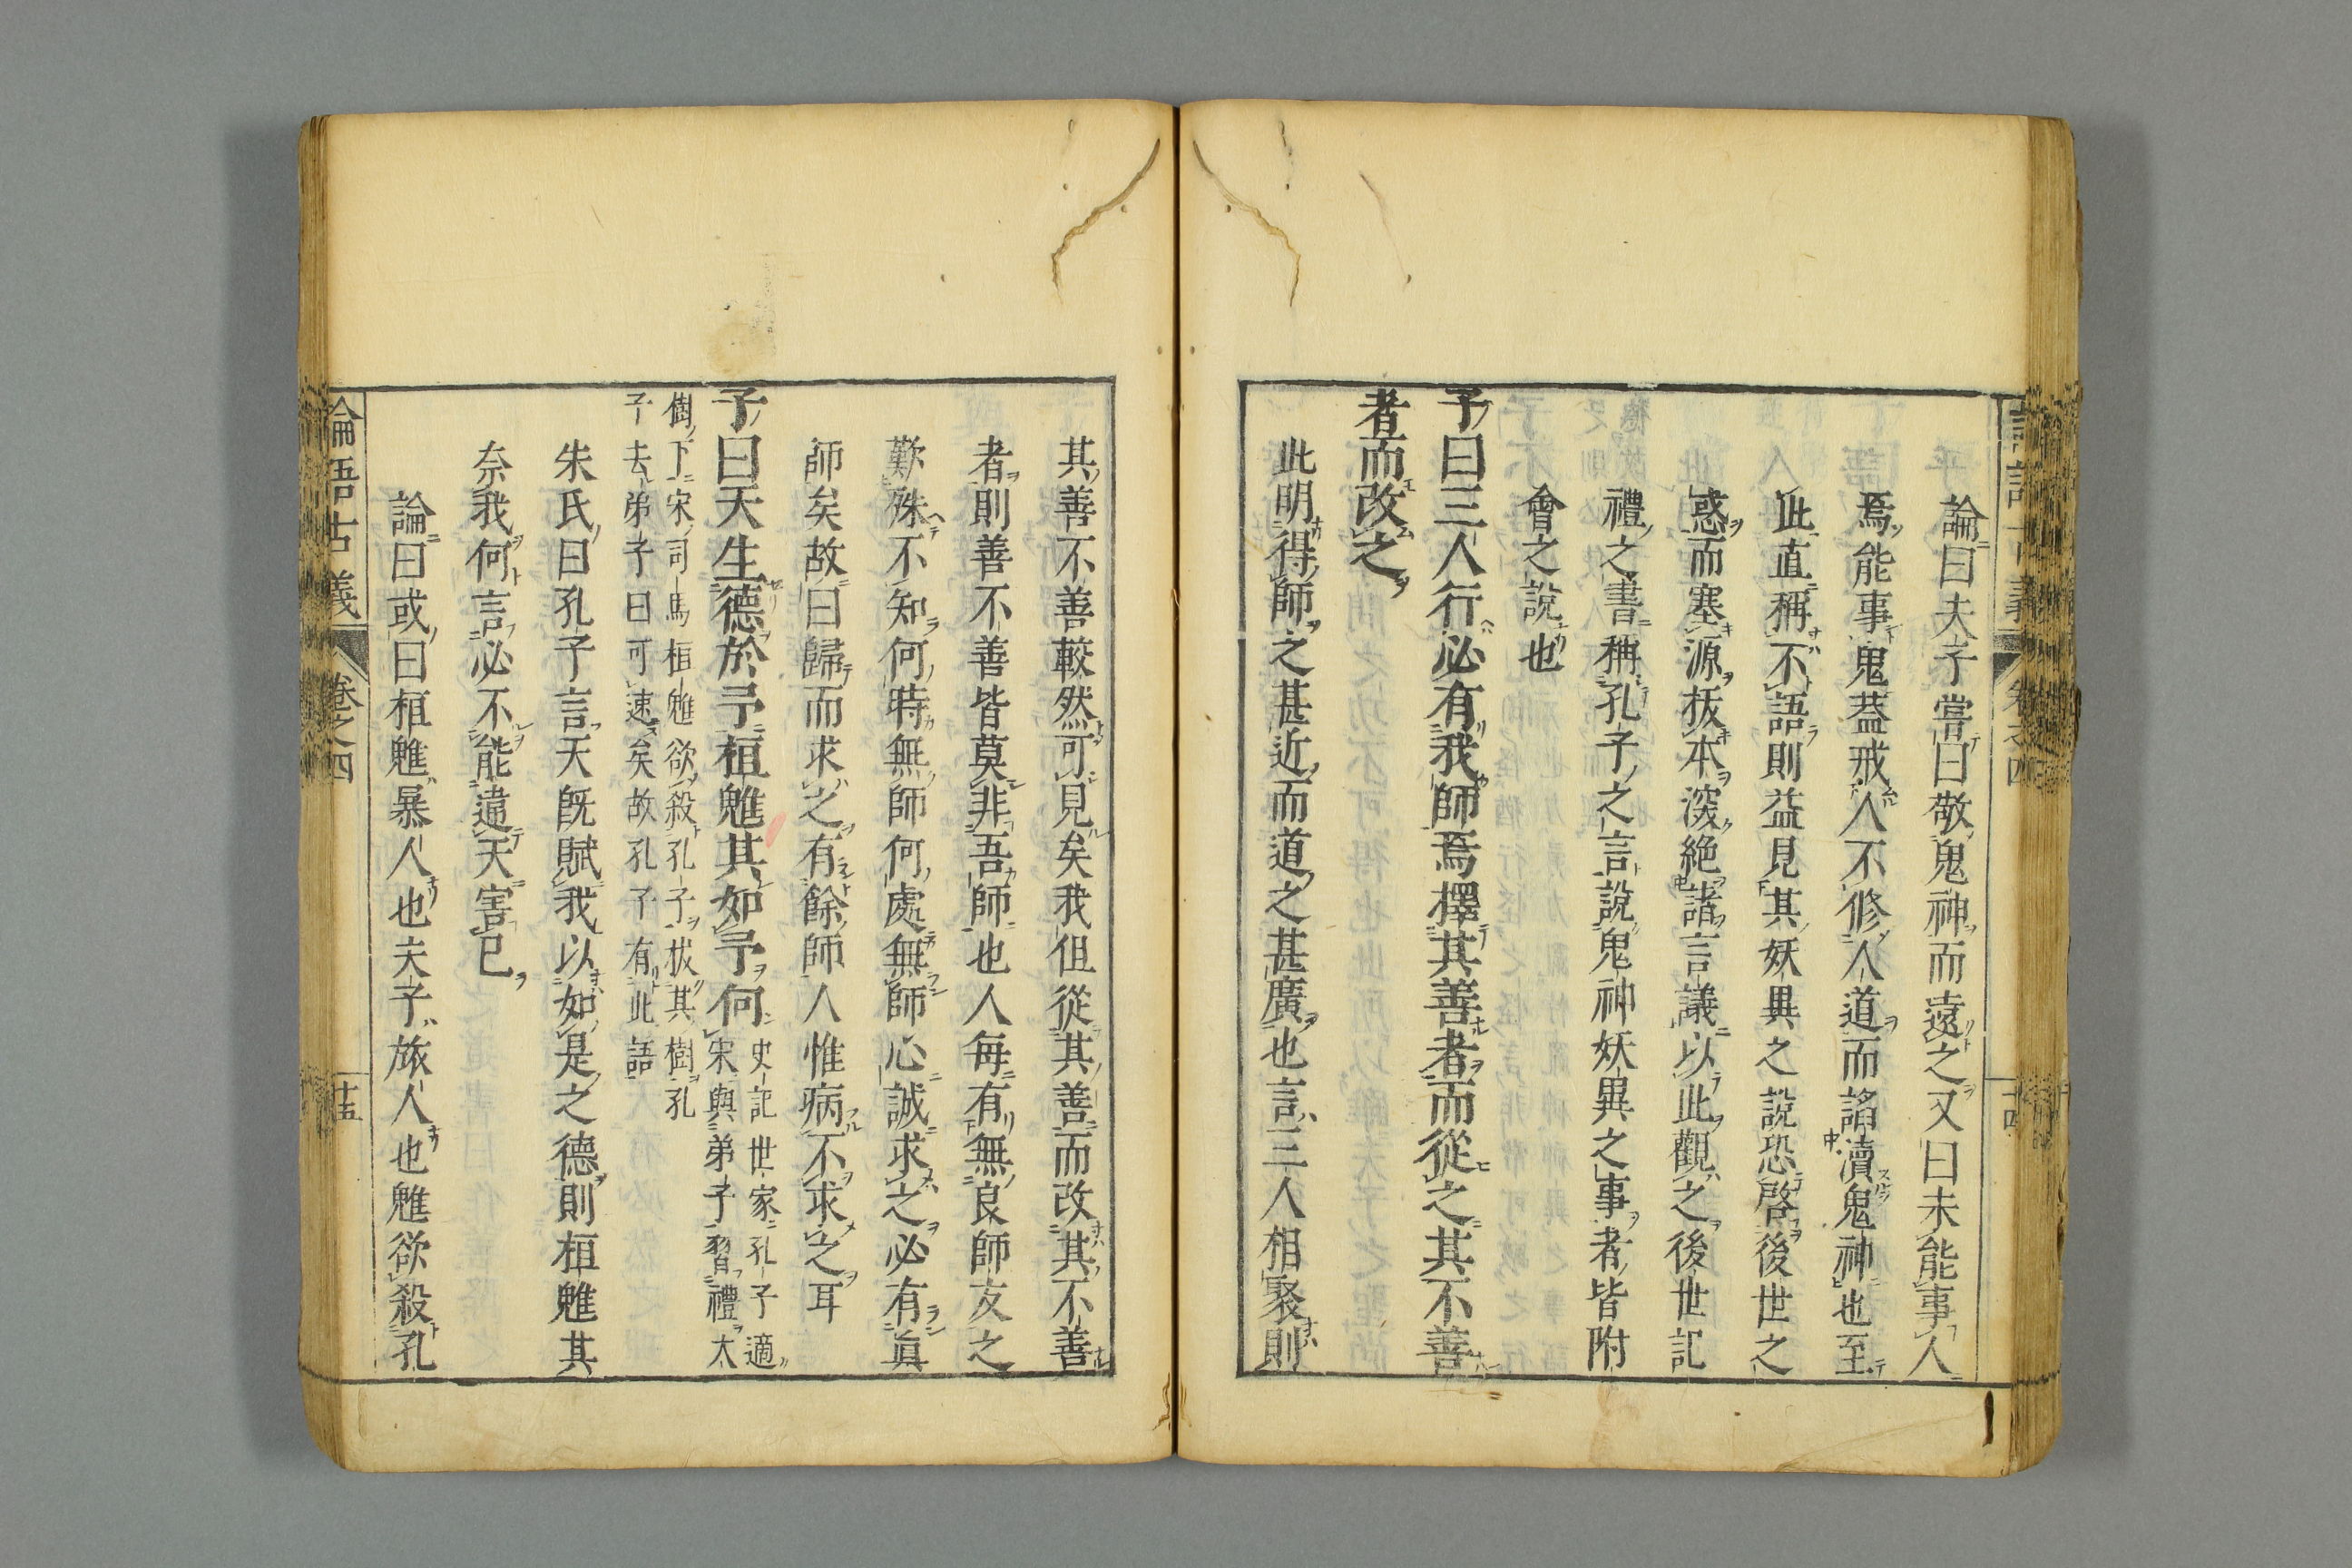 論曰夫子嘗曰敬鬼神而遠之又曰未能事人
焉能事鬼蓋戒人不修人道而諂瀆鬼神也至
此直稱不語則益見其妖異之說恐啓後世之
惑而塞源拔本深絕諸言議以此觀之後世記
禮之書稱孔子之言說鬼神妖異之事者皆附
會之說也
子曰三人行必有我師焉擇其善者而從之其不善
者而改之
此明得師之甚近而道之甚廣也言三人相聚則
其善不善較然可見矣我但從其善而改其不善
者則善不善皆莫非吾師也人每有無良師友之
歎殊不知何時無師何處無師心誠求之必有眞
師矣故曰歸而求之有餘師人惟病不求之耳
子曰天生德於予桓魋其如予何
史記世家孔子適
宋與弟子習禮大
樹下宋司馬桓魋欲殺孔子拔其樹孔
子去弟子曰可速矣故孔子有此語
朱氏曰孔子言天既賦我以如是之德則桓魋其
奈我何言必不能違天害己
論曰或曰桓魋暴人也夫子旅人也魋欲殺孔
論語古義 卷之四 十五